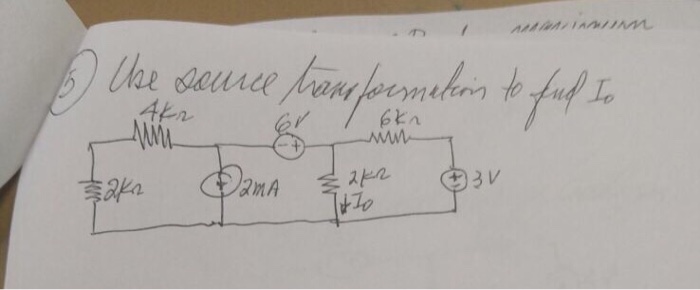 5) Use source transformation to find Io
4KΩ
6V
6KΩ
2KΩ
2mA
2KΩ
3V
↓Io